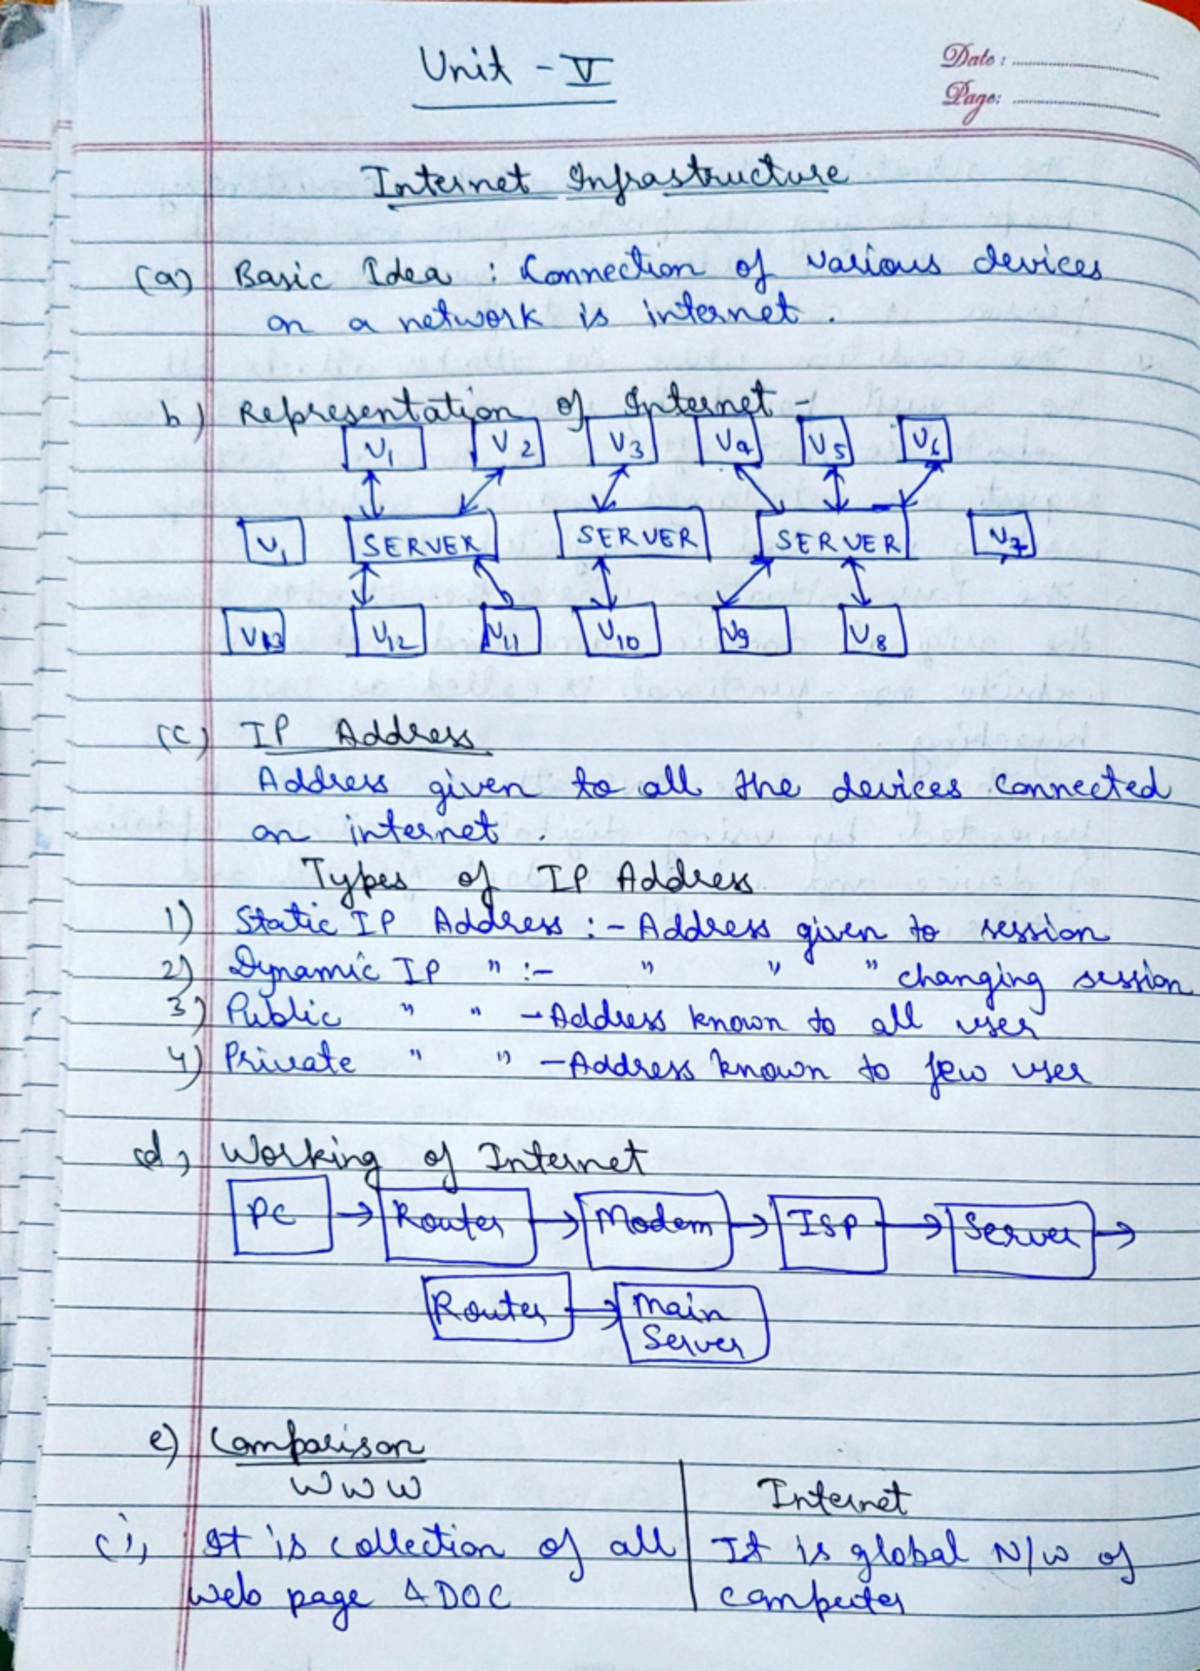 Unit - V
Date :
Page:
Internet Infrastructure
(a) Basic Idea : Connection of various devices
on a network is internet .
b) Representation of Internet -
V1 V2 V3 V4 V5 V6
V1 SERVER SERVER SERVER V7
V13 V12 V11 V10 V9 V8
(c) IP Address
Address given to all the devices connected
on internet .
Types of IP Address
1) Static IP Address :- Address given to session
2) Dynamic IP " :- " " " changing session
3) Public " " - Address known to all user
4) Private " " - Address known to few user
(d) Working of Internet
PC → Router → Modem → ISP → Server →
Router → Main
Server
e) Comparison
WWW Internet
(i) It is collection of all It is global N/W of
web page & DOC computer